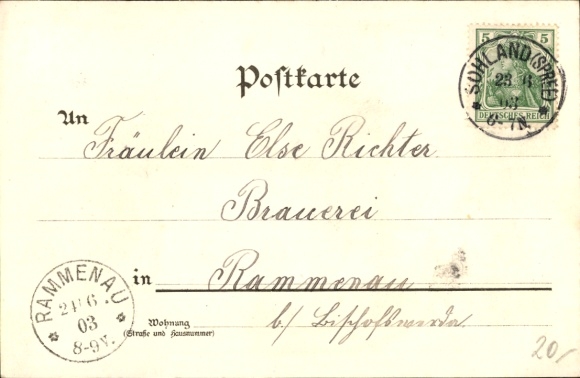 5 5
DEUTSCHES REICH
SOHLAND (SPREE)
23 6
03
6-7N.
Postkarte
An
Fräulein Else Richter
Brauerei
in Rammenau
Wohnung
(Straße und Hausnummer)
b/ Bischofswerda.
RAMMENAU
24 6
03
8-9V.
20/